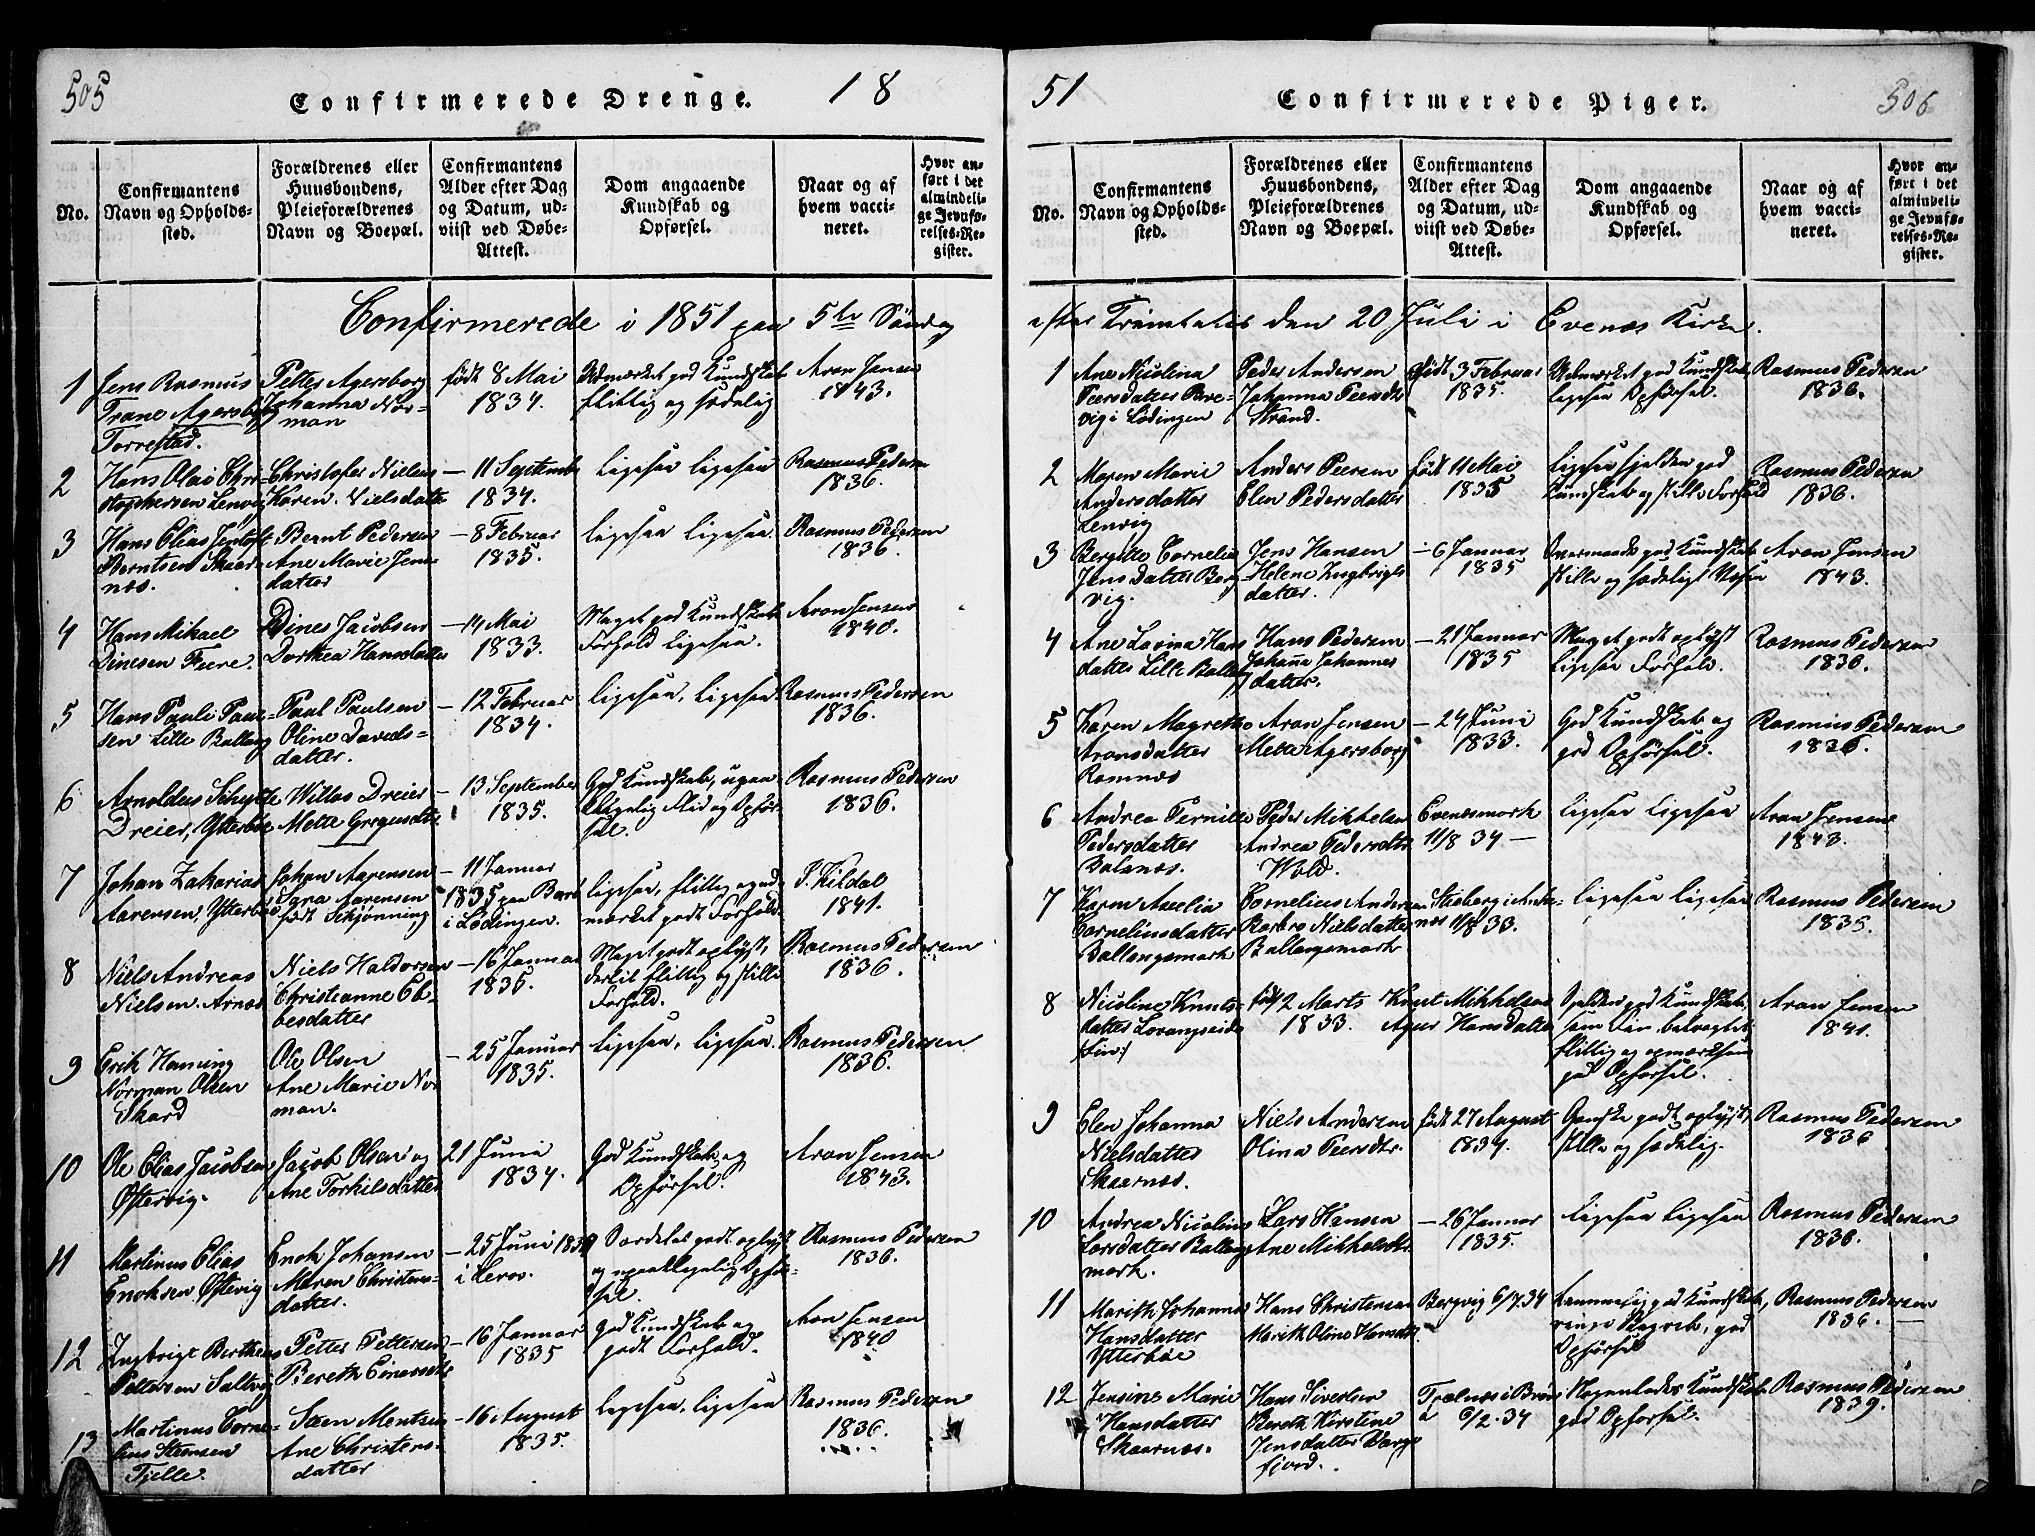 505
Confirmerede Drenge.
18
No.
Confirmantens
Navn og Opholds-
sted.
Forældrenes eller
Huusbondens,
Pleieforældrenes
Navn og Boepæl.
Confirmantens
Alder efter Dag
og Datum, ud-
viist ved Døbe-
Attest.
Dom angaaende
Kundskab og
Opførsel.
Naar og af
hvem vacci-
neret.
Hvor an-
ført i det
almindeli-
ge Jevnfø-
relses-Re-
gister.
Confirmerede i 1851 paa 5te Søndag
1
Jens Rasmus
Trane Agersborg
Torrestad.
Petter Agersborg
Johanna Nor-
man
født 8 Mai
1834.
Udmærket god Kundskab
flittig og sædelig
Aron Jensen
1843.
2
Hans Olai Chri-
stophersen Lenvig
Christofer Nielsen
Karen Nielsdatter
— 11 Septembr
1834.
ligesaa ligesaa
Rasmus Pedersen
1836.
3
Hans Elias Jentoft
Berntsen Skaar-
næs.
Bernt Pedersen
Ane Marie Jens-
datter
— 8 Februar
1835.
ligesaa ligesaa
Rasmus Pedersen
1836.
4
Hans Mikael
Dinesen Fiere.
Dines Jacobsen
Dorthea Hansdatter
— 14 Mai
1833.
Meget god Kundskab
Forhold ligesaa.
Aron Jensen
1840.
5
Hans Pauli Paul-
sen Lille Ballang
Paul Paulsen
Oline Davids-
datter.
— 12 Februar
1834.
ligesaa, ligesaa
Rasmus Pedersen
1836.
6
Arnoldus Schytte
Dreier, Ytterbøe
Willas Dreier
Mette Gregusdtr
— 13 September
1835.
God Kundskab, upaa-
klagelig Flid og Opfør-
sel.
Rasmus Pedersen
1836.
7
Johan Zakarias
Aarensen, Ytterbøe
Johan Aarensen
Sara Aarensen
født Schjønning
— 11 Januar
1835 paa Barø
i Lødingen.
ligesaa, flittig og ud-
mærket godt Forhold
P. Kildal
1841.
8
Niels Andreas
Nielsen. Arnæs
Niels Haldorsen
Christianne Eb-
besdatter
— 16 Januar
1835.
Meget godt oplyst,
dertil flittig og stille
Forhold.
Rasmus Pedersen
1836.
9
Erik Haning
Norman Olsen
Skard
Ole Olsen
Ane Marie Nor
man.
— 25 Januar
1835.
ligesaa, ligesaa.
Rasmus Pedersen
1836.
10
Ole Elias Jacobsen
Østervig.
Jacob Olsen og
Ane Torkilsdatter
21 Juni
1834.
God Kundskab og
Opførsel.
Aron Jensen
1843.
11
Martinus Elias
Enoksen Østevig
Enok Johansen
Maren Christens-
datter.
— 25 Juni
Særdeles godt oplyst
og upaaklagelig Opfør-
sel.
Rasmus Pedersen
1836.
12
Ingbrigt Berthæus
Pettersen Saltvig
Petter Pettersen
Bereth Einarsdtr
— 16 Januar
1835
god Kundskab og
godt Forhold.
Aron Jensen
1840
13
Martinus Corne-
lius Steensen
Tjelle.
Steen Mentsen
Ane Christens-
datter
— 16 August
1835.
ligesaa, ligesaa
Rasmus Pedersen
1836.
51
Confirmerede Piger.
506
No.
Confirmantens
Navn og Opholds-
sted.
Forældrenes eller
Huusbondens,
Pleieforældrenes
Navn og Boepæl.
Confirmantens
Alder efter Dag
og Datum, ud-
viist ved Døbe-
Attest.
Dom angaaende
Kundskab og
Opførsel.
Naar og af
hvem vacci-
neret.
Hvor an-
ført i det
almindeli-
ge Jevnfø-
relses-Re-
gister.
efter Trinitatis den 20 Juli i Evenæs Kirke.
1
Ane Nicolina
Peersdatter
vig i Lødingen
Peder Andersen
Johanna Peersdtr
Strand.
født 3 Februar
1835.
Udmærket god Kundskab
ligesaa Opførsel.
Rasmus Pedersen
1836.
2
Maren Marie
Andersdatter
Lenvig
Anders Peersen
Elen Pedersdatter
født 11 Mai
1835
ligesaa sjelden god
Kundskab og stille Forhold
Rasmus Pedersen
1836.
3
Bergitte Cornelia
Jensdatter Berg
vig.
Jens Hansen
Helene Ingbrigts
datter.
— 6 Januar
1835
Overmaade god Kundskab
stille og sædeligt Væsen
Aron Jensen
1843.
4
Ane Lovina Hans
datter Lille Ballang
Hans Pedersen
Johanna Johannes
datter.
— 21 Januar
1835
Meget godt oplyst
ligesaa Forhold.
Rasmus Pedersen
1836.
5
Karen Magretha
Aronsdatter
Ramnæs
Aron Jensen
Metta Agersborg
— 24 Juni
1833.
God Kundskab og
god Opførsel.
Rasmus Pedersen
1836.
6
Andrea Pernille
Pedersdatter
Balsnæs.
Peder Mikkelsen
Andrea Pedersdtr
Wold.
Evenesmark
11/8 34 —
ligesaa ligesaa
Aron Jensen
1843.
7
Karen Amelia
Corneliusdatter
Ballangsmark
Cornelius Andersen
Barbro Nielsdatter
Ballangsmark
11/8 33.
ligesaa ligesaa
Rasmus Pedersen
1835.
8
Nicoline Knuts-
datter
født 2 Marts
1833.
Knut Mikkelsen
Hansdatter
Sjelden god Kundskab,
som Fin betragtet
flittig og opmærksom
god Opførsel.
Aron Jensen
1841.
9
Elen Johanna
Nielsdatter
Skaarnæs.
Niels Andersen
Olina Peersdtr.
født 27 August
1834.
Ganske godt oplyst,
stille og sædelig.
Rasmus Pedersen
1836
10
Andrea Nicoline
Larsdatter Ballang
mark.
Lars Hansen
Ane Mikkelsdtr
— 26 Januar
1835.
ligesaa ligesaa
Rasmus Pedersen
1836.
11
Marith Johanna
Hansdatter
Ytterbøe
Hans Christensen
Marith Olina Hansdtr
Bergvig 6/7 34
god Kundskab,
god
Opførsel
Rasmus Pedersen
1836. —
12
Jensine Marie
Hansdatter
Skaarnæs.
Hans Sivertsen
Bereth Kirstine
Jensdatter
fjord.
Trælnæs i Brøn
ø 6/2. 34
Nogenledes Kundskab
god Opførsel.
Rasmus Pedersen
1839.